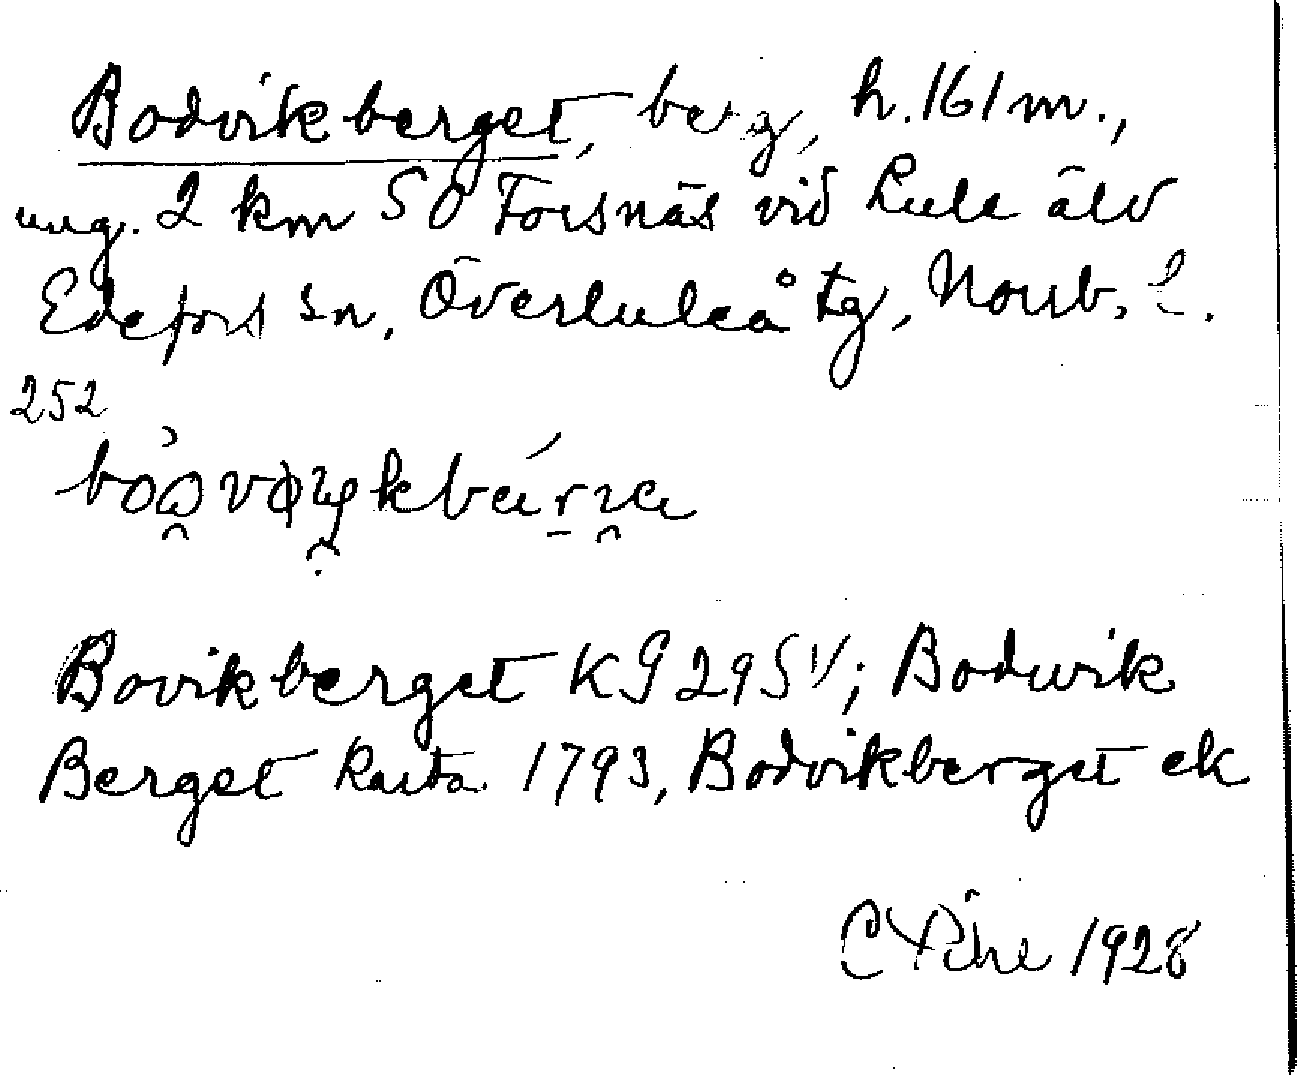 Bodvikberget, berg, h. 161 m.,
ung. 2 km SO Forsnäs vid Lule älv
Edefors sn, Överluleå tg, Norrb. l.
252
Bovikberget KG 295 1/; Bodwik
Berget karta 1793, Bodvikberget ek
1928